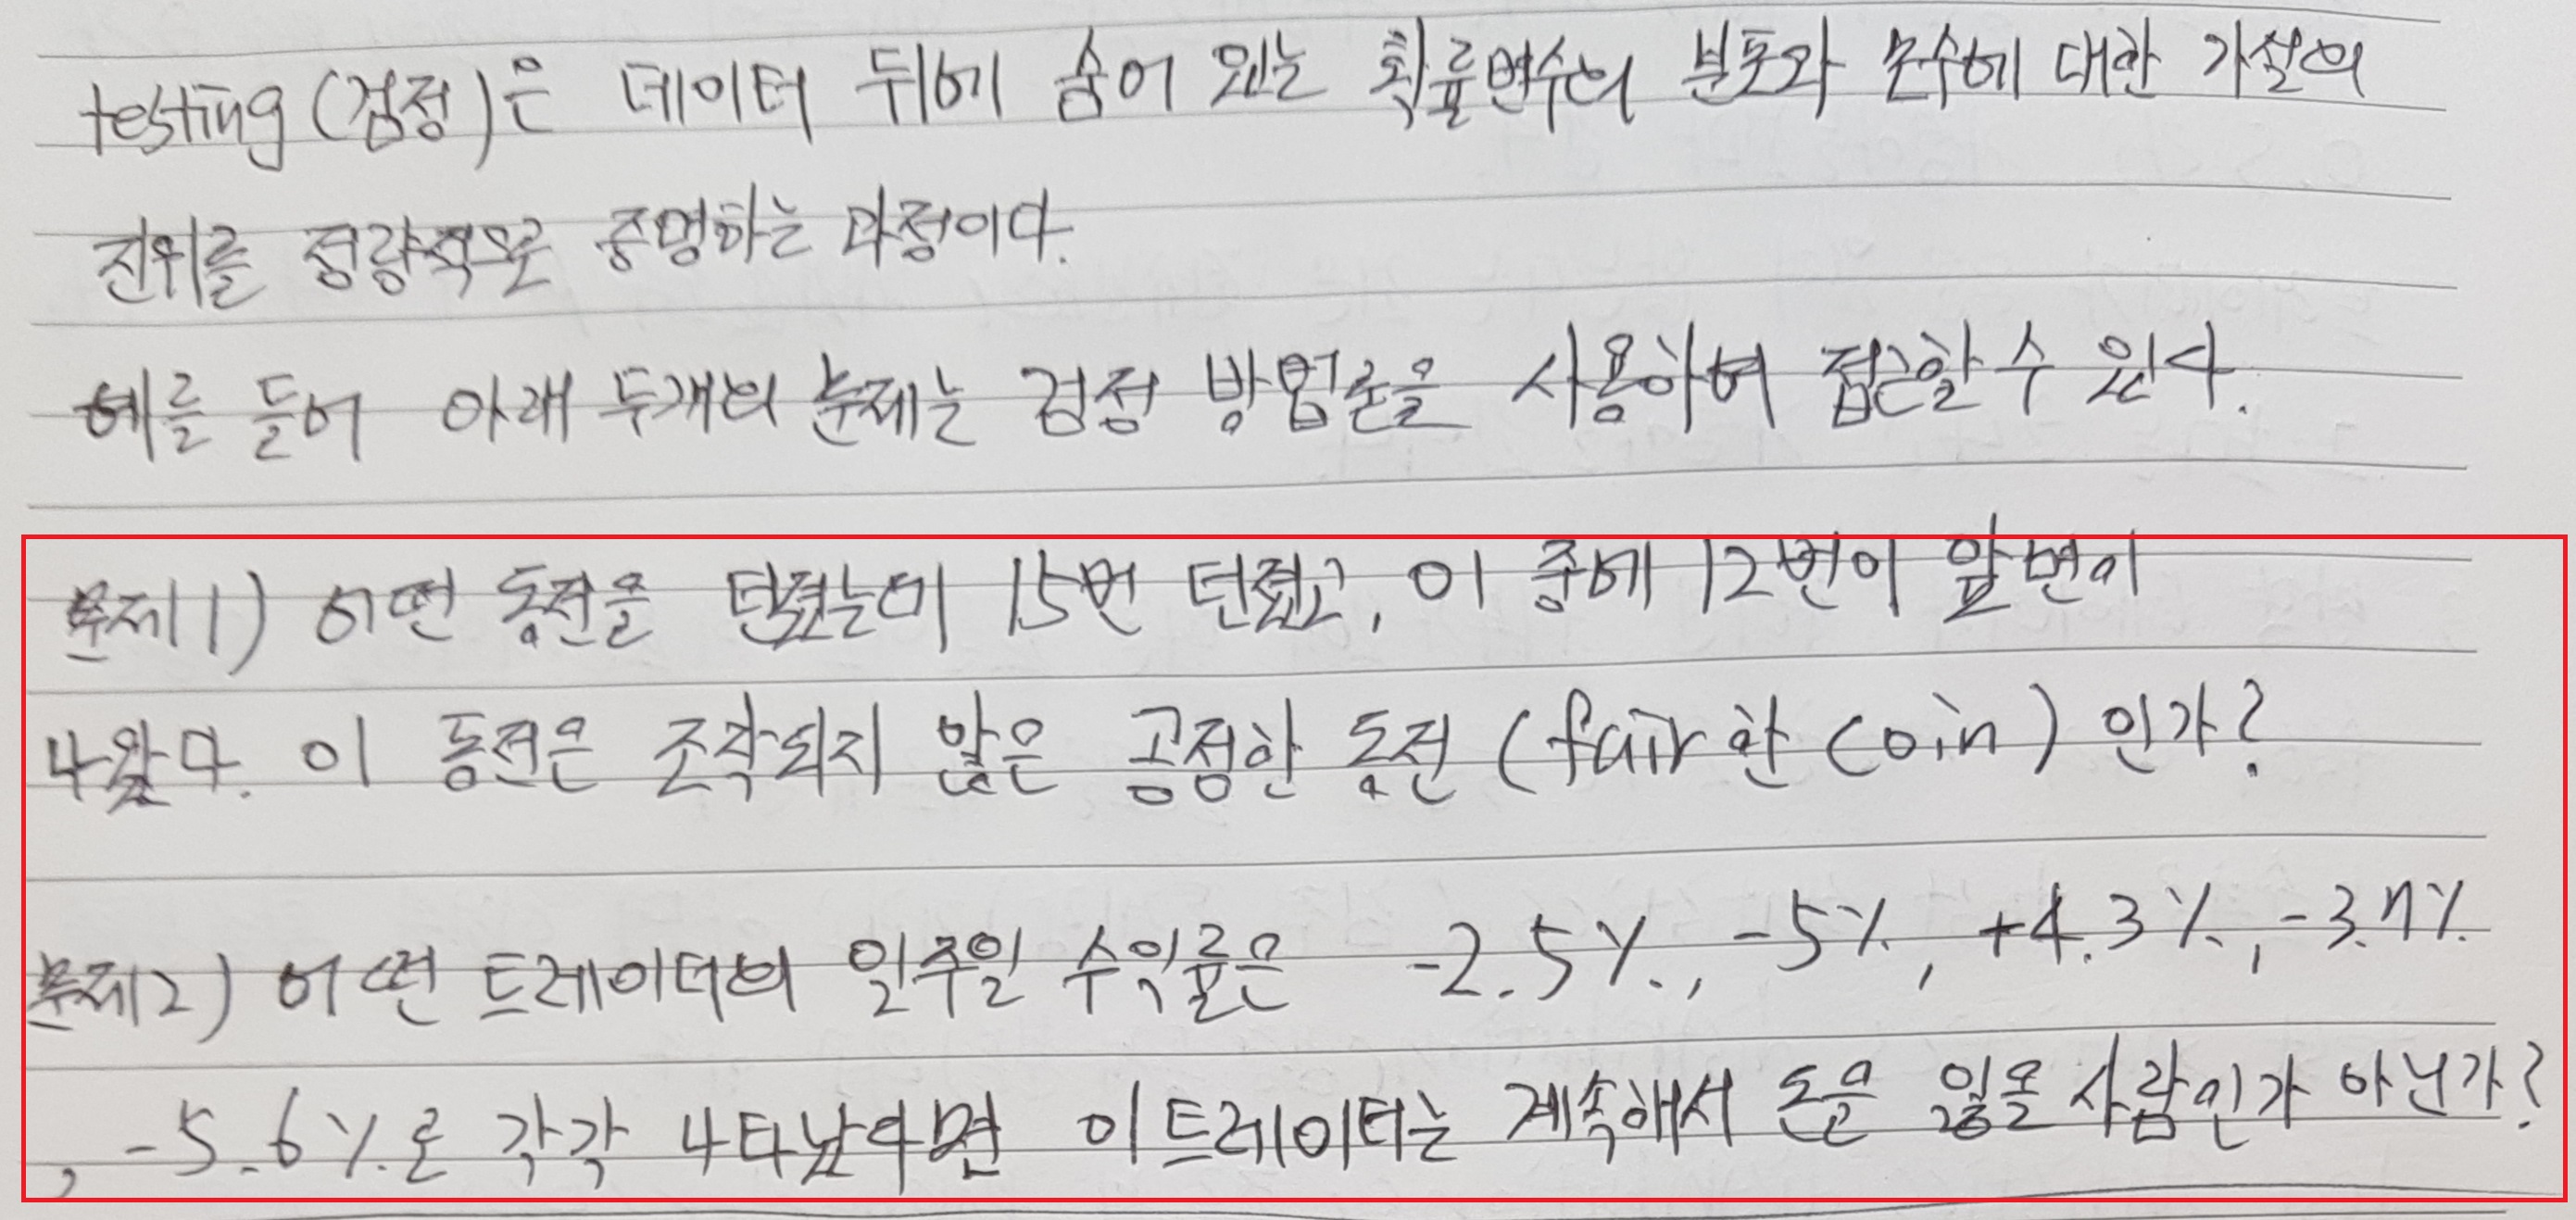 testing (검정)은 데이터 뒤에 숨어 있는 확률변수의 분포와 모수에 대한 가설의
진위를 정량적으로 증명하는 과정이다.
예를 들어 아래 두개의 문제는 검정 방법론을 사용하여 접근할 수 있다.
문제1) 어떤 동전을 던졌는데 15번 던졌고, 이 중에 12번이 앞면이
나왔다. 이 동전은 조작되지 않은 공정한 동전 (fair한 coin) 인가?
문제2) 어떤 트레이더의 일주일 수익률은 -2.5%, -5%, +4.3%, -3.7%
, -5.6%로 각각 나타났다면 이 트레이더는 계속해서 돈을 잃을 사람인가 아닌가?